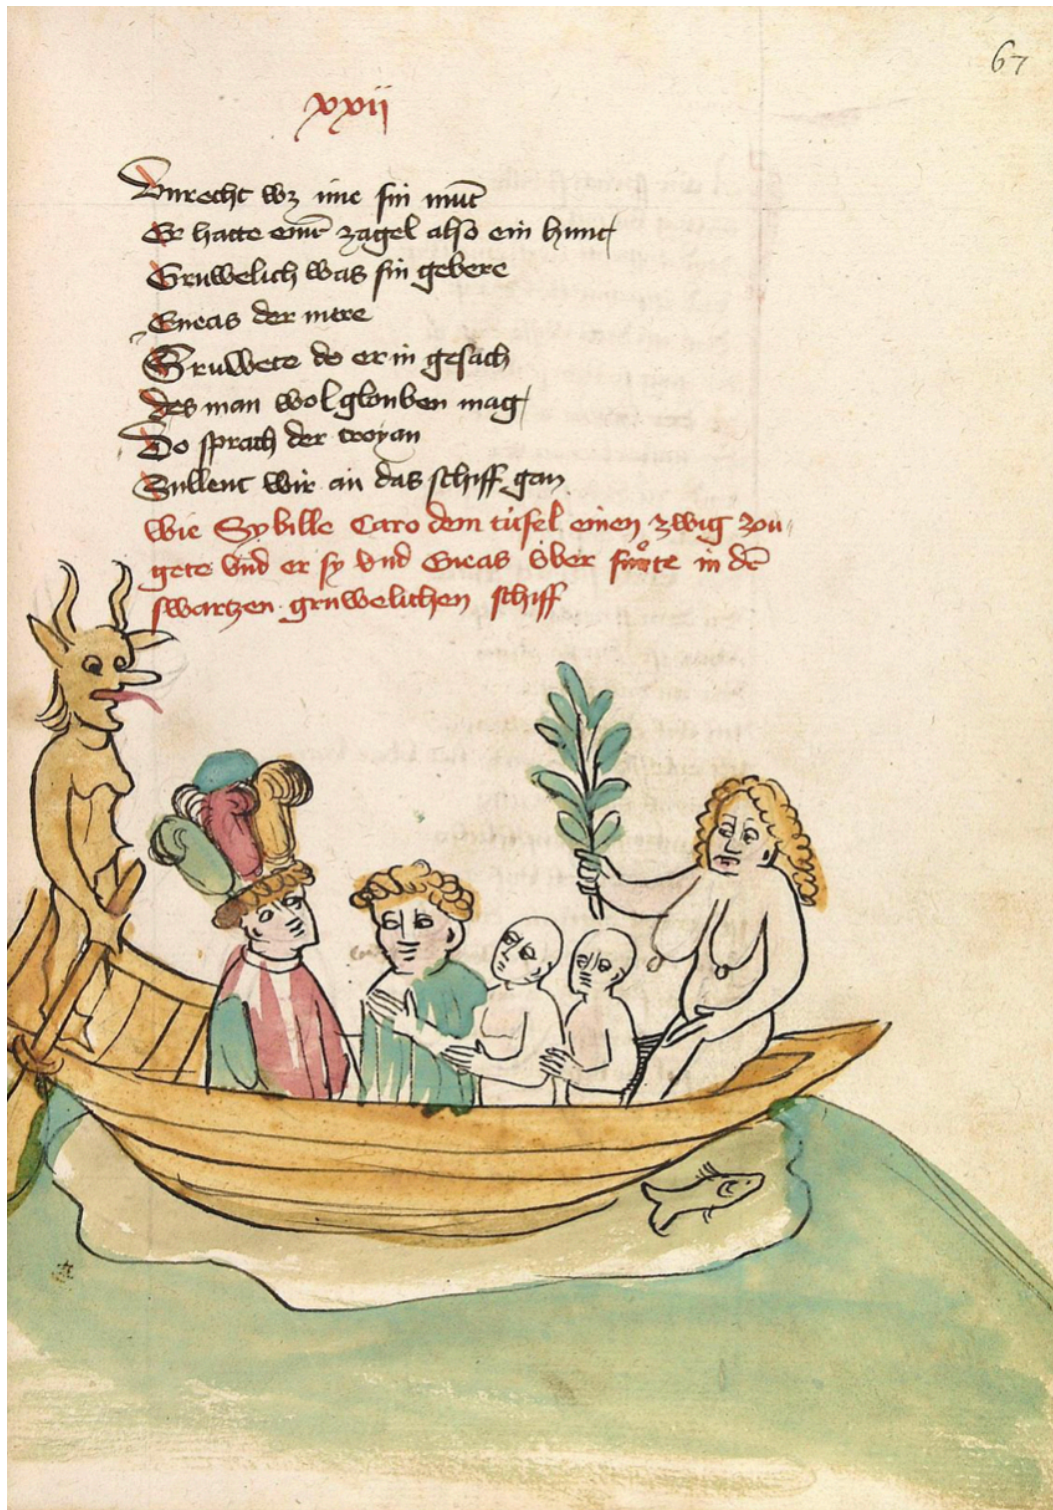 67
xxij
Vnrecht wz ime sin mut̄
Er hatte einē zagel also ein hunt
Gruwelich was sin gebere
Eneas der mere
Gruwete do er in gesach
des man wol glouben mag
Do sprach der troyan
Sullent wir an das schiff gan
Wie Sybille Caro dem tüfel einen zwig zou-
gete vnd er sy vnd Eneas v̈ber fuͦrte in dē
swartzen gruwelichen schiff